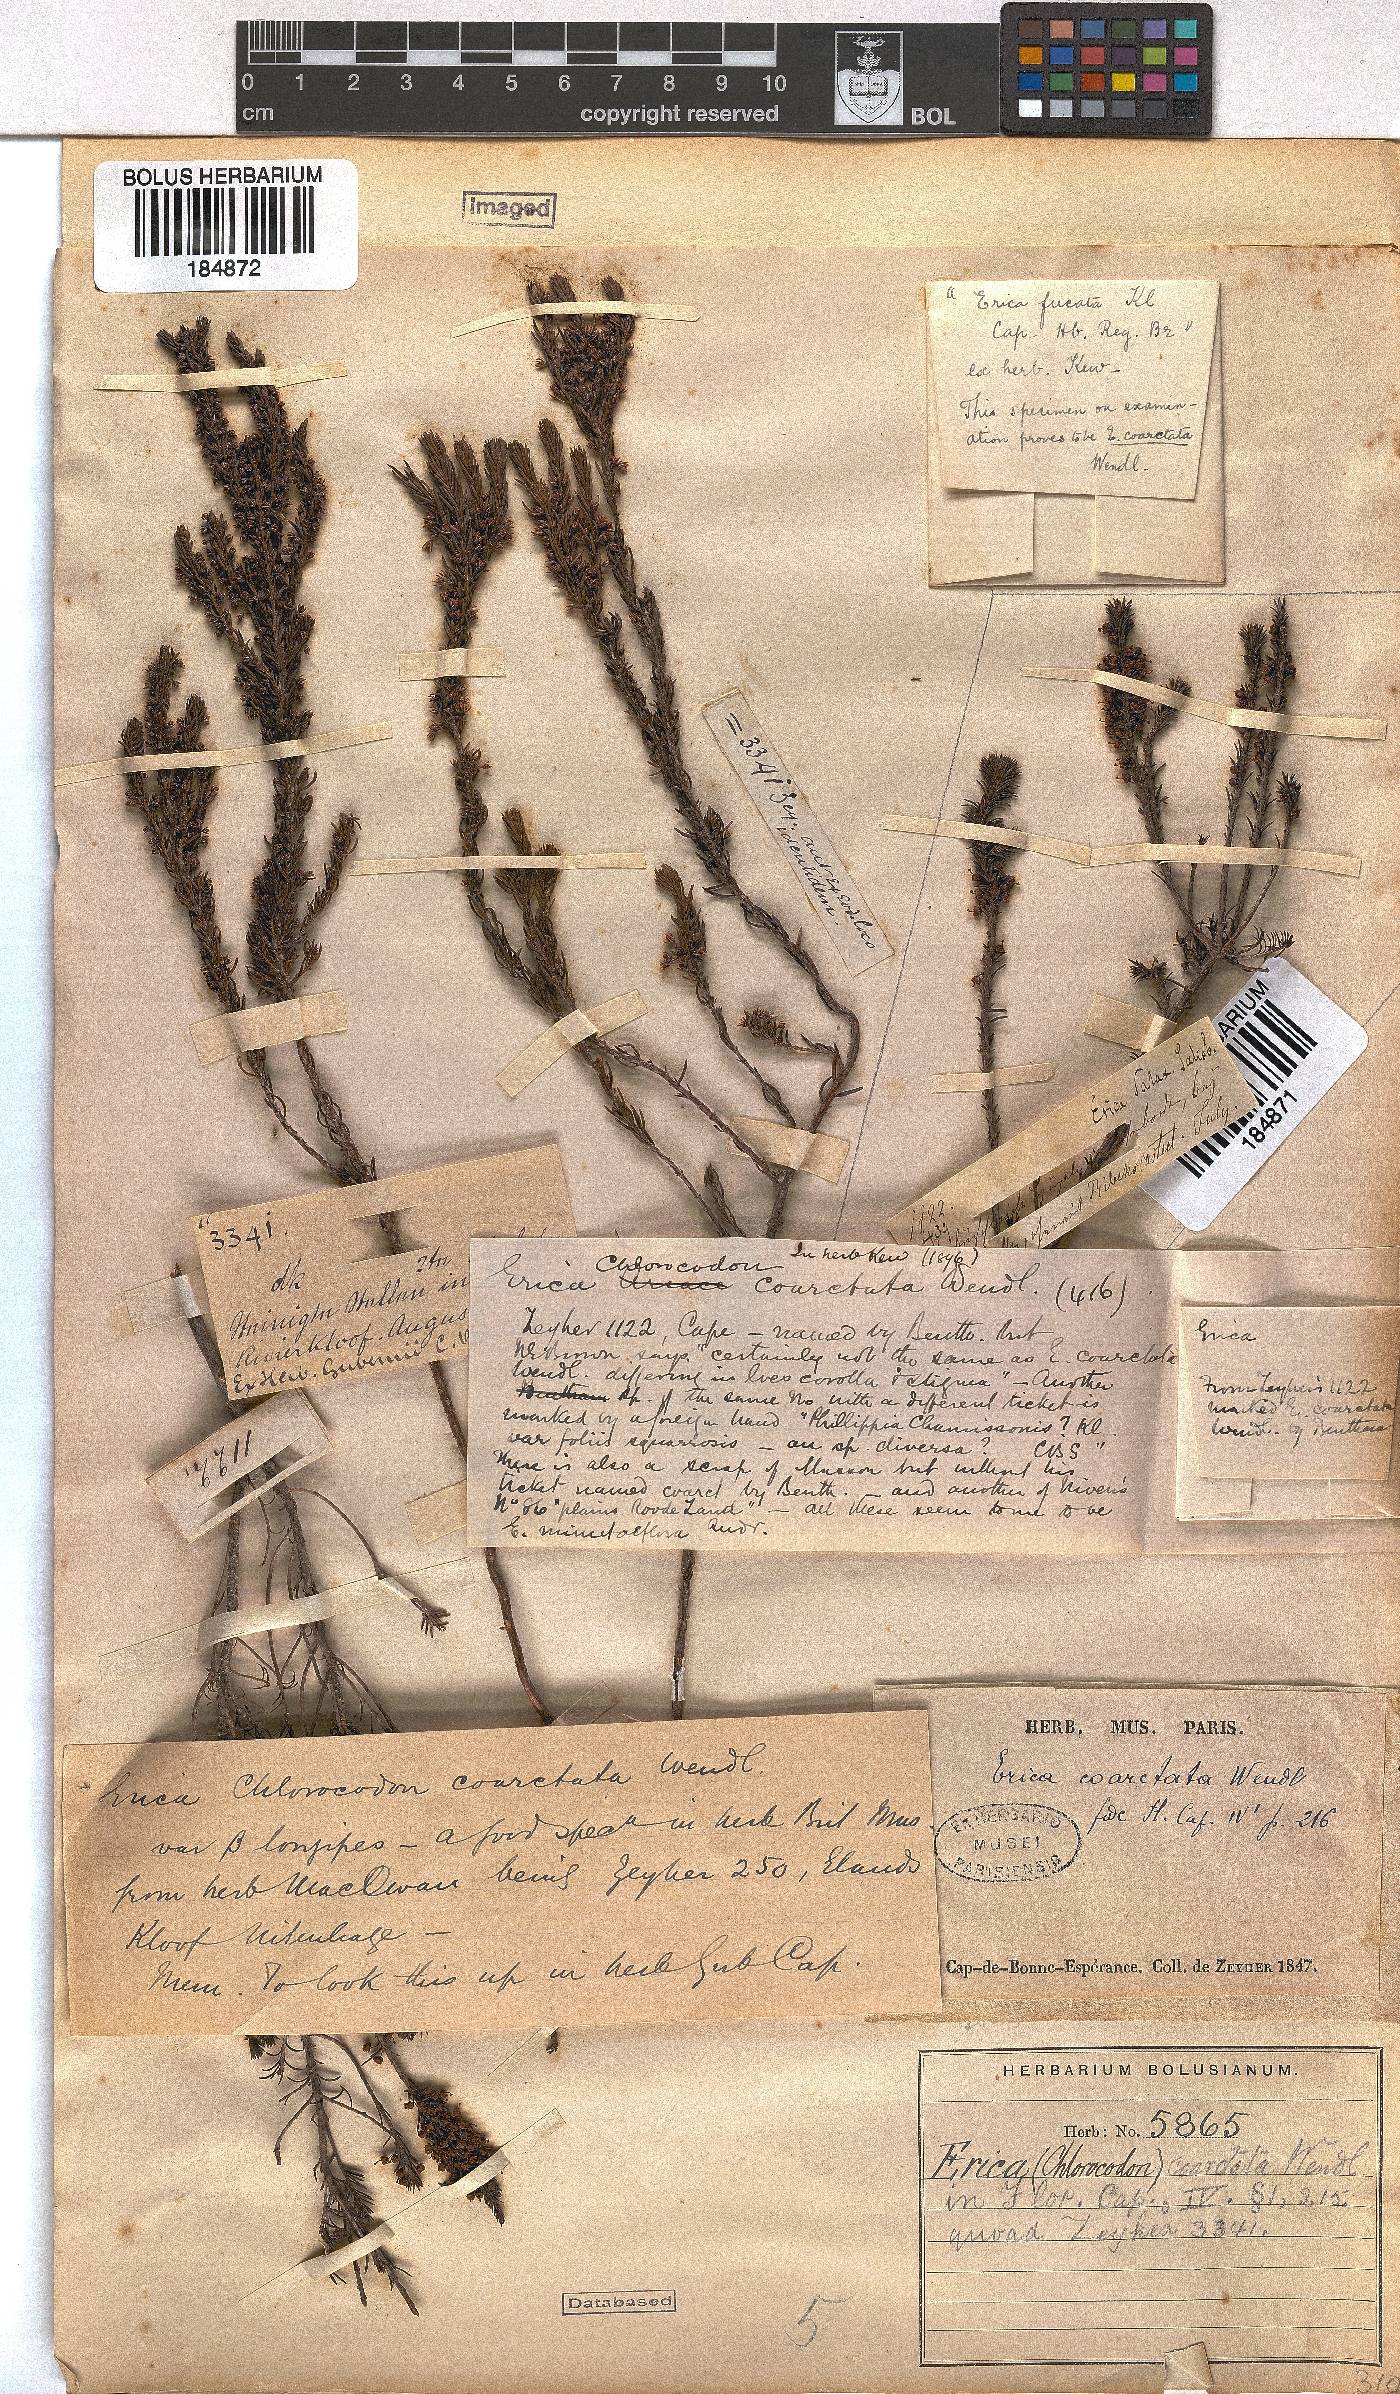 0 1 2 3 4 5 6 7 8 9 10
cm
copyright reserved
BOL
BOLUS HERBARIUM
184872
imaged
" Erica fucata Kl
Cap. Hb. Reg. Br "
ex herb. Kew-
This specimen on examin-
ation proves to be E. coarctata
Wendl.
= 3341 Zey:
identidem.
ARIUM
184871
Erica
July.
1122.
" 3341.
Rivierkloof. August
Ex Herb. Gubernii C.
1122
In herb Kew (1896)
Chlorocodon
Erica coarctata Wendl. (416)
Zeyher 1122, Cape - named by Benth. But
NE Brown says "certainly not the same as E. coarctata
Wendl. differing in lvs corolla & stigma" - Another
Bentham sp. of the same No with a different ticket is
marked by a foreign hand "Phillippia Chamissonis? Kl.
var foliis squarrosis - an sp. diversa? "
There is also a scrap of Masson but without his
ticket named coarct by Benth. - and another of Niven's
No 86 "plains Roode Zand" - all these seem to me to be
E. minutaeflora Andr.
Erica
From Zeyher's 1122
marked E. coarctata
Wendl. by Bentham
Erica Chlorocodon coarctata Wendl.
var β longipes - a good specn in herb Brit Mus.
from herb MacOwan being Zeyher 250, Elands
Kloof Uitenhage -
Mem. To look this up in herb Gub Cap.
HERB. MUS. PARIS.
Erica coarctata Wendl
fide Fl. Cap. IV' p. 216
EX HERBARIO
MUSEI
PARISIENSIS
Cap-de-Bonne-Espérance. Coll. de ZEYHER 1847.
HERBARIUM BOLUSIANUM.
Herb: No. 5865
Erica (Chlorocodon) coarctata Wendl
in Flor. Cap., IV. §1, 215
quoad Zeyher 3341.
Databased
5